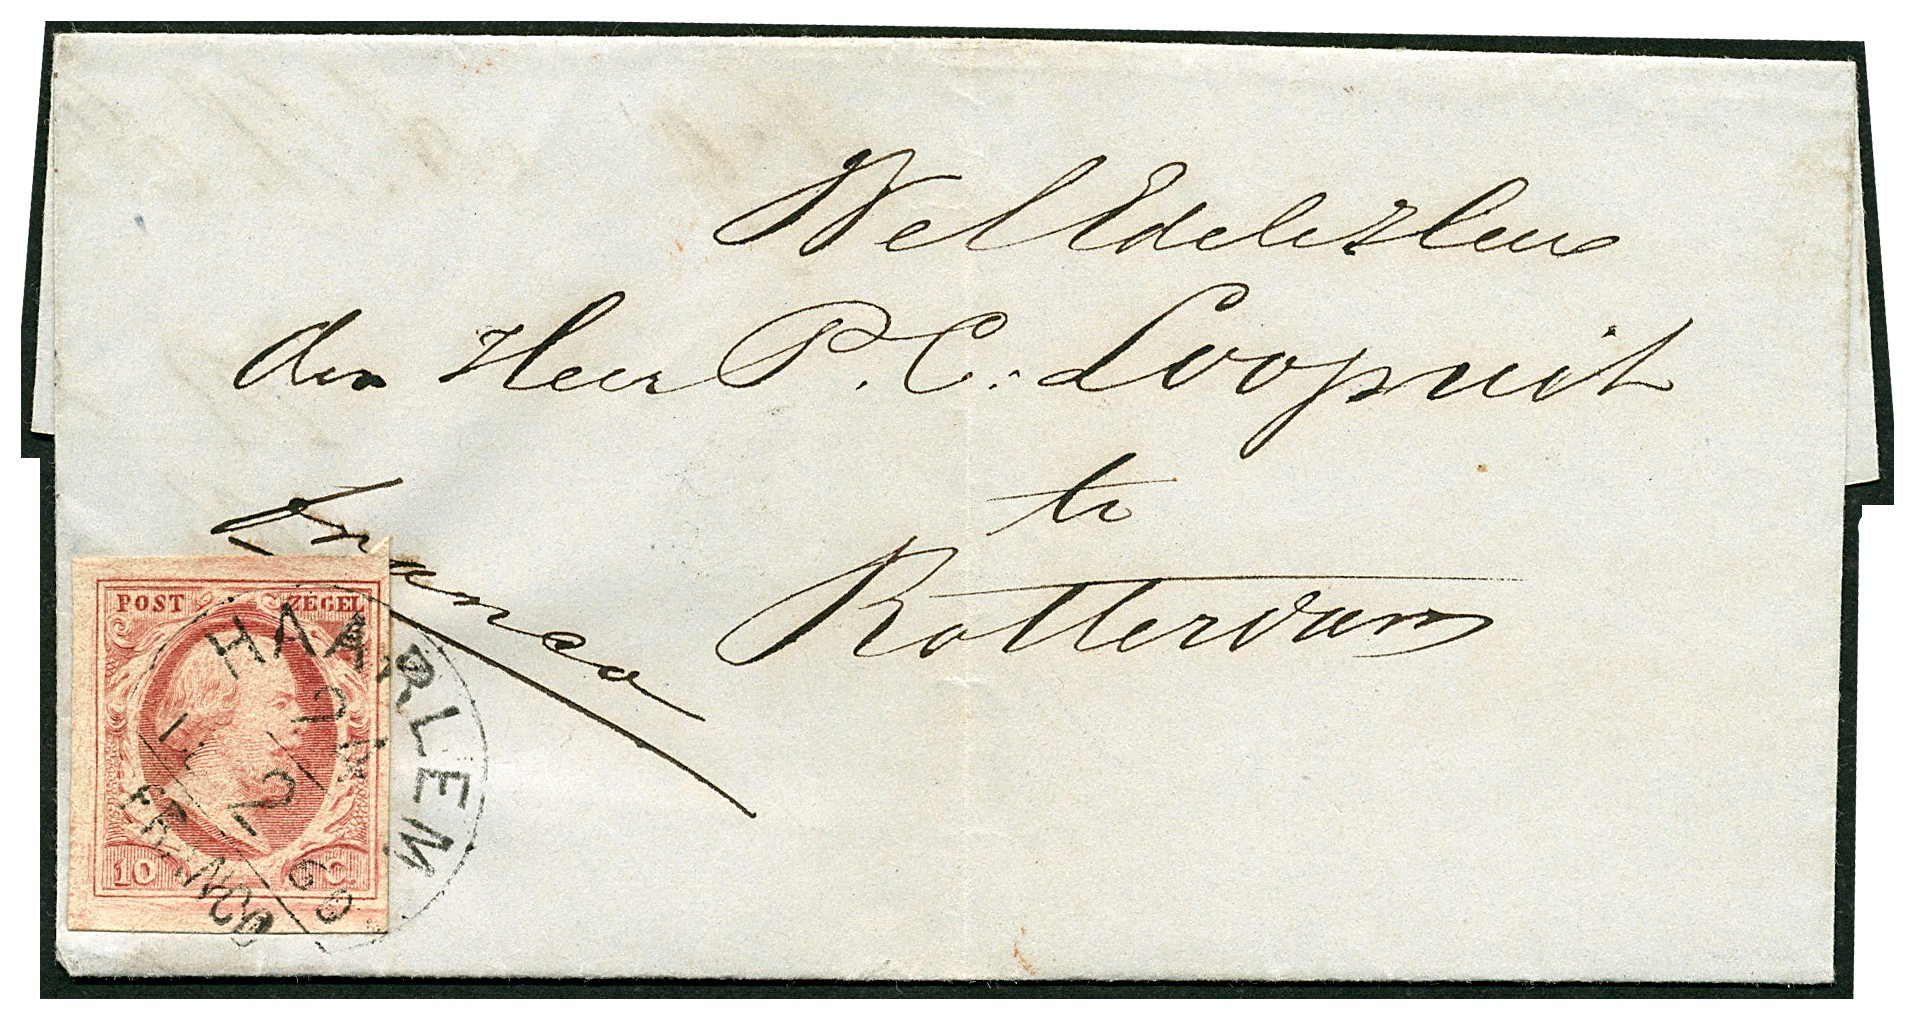 WelEdele Heer
den Heer P. C. Loopuit
te
Rotterdam
franco
POST ZEGEL
10 C.
HAARLEM
2
60
FRANCO